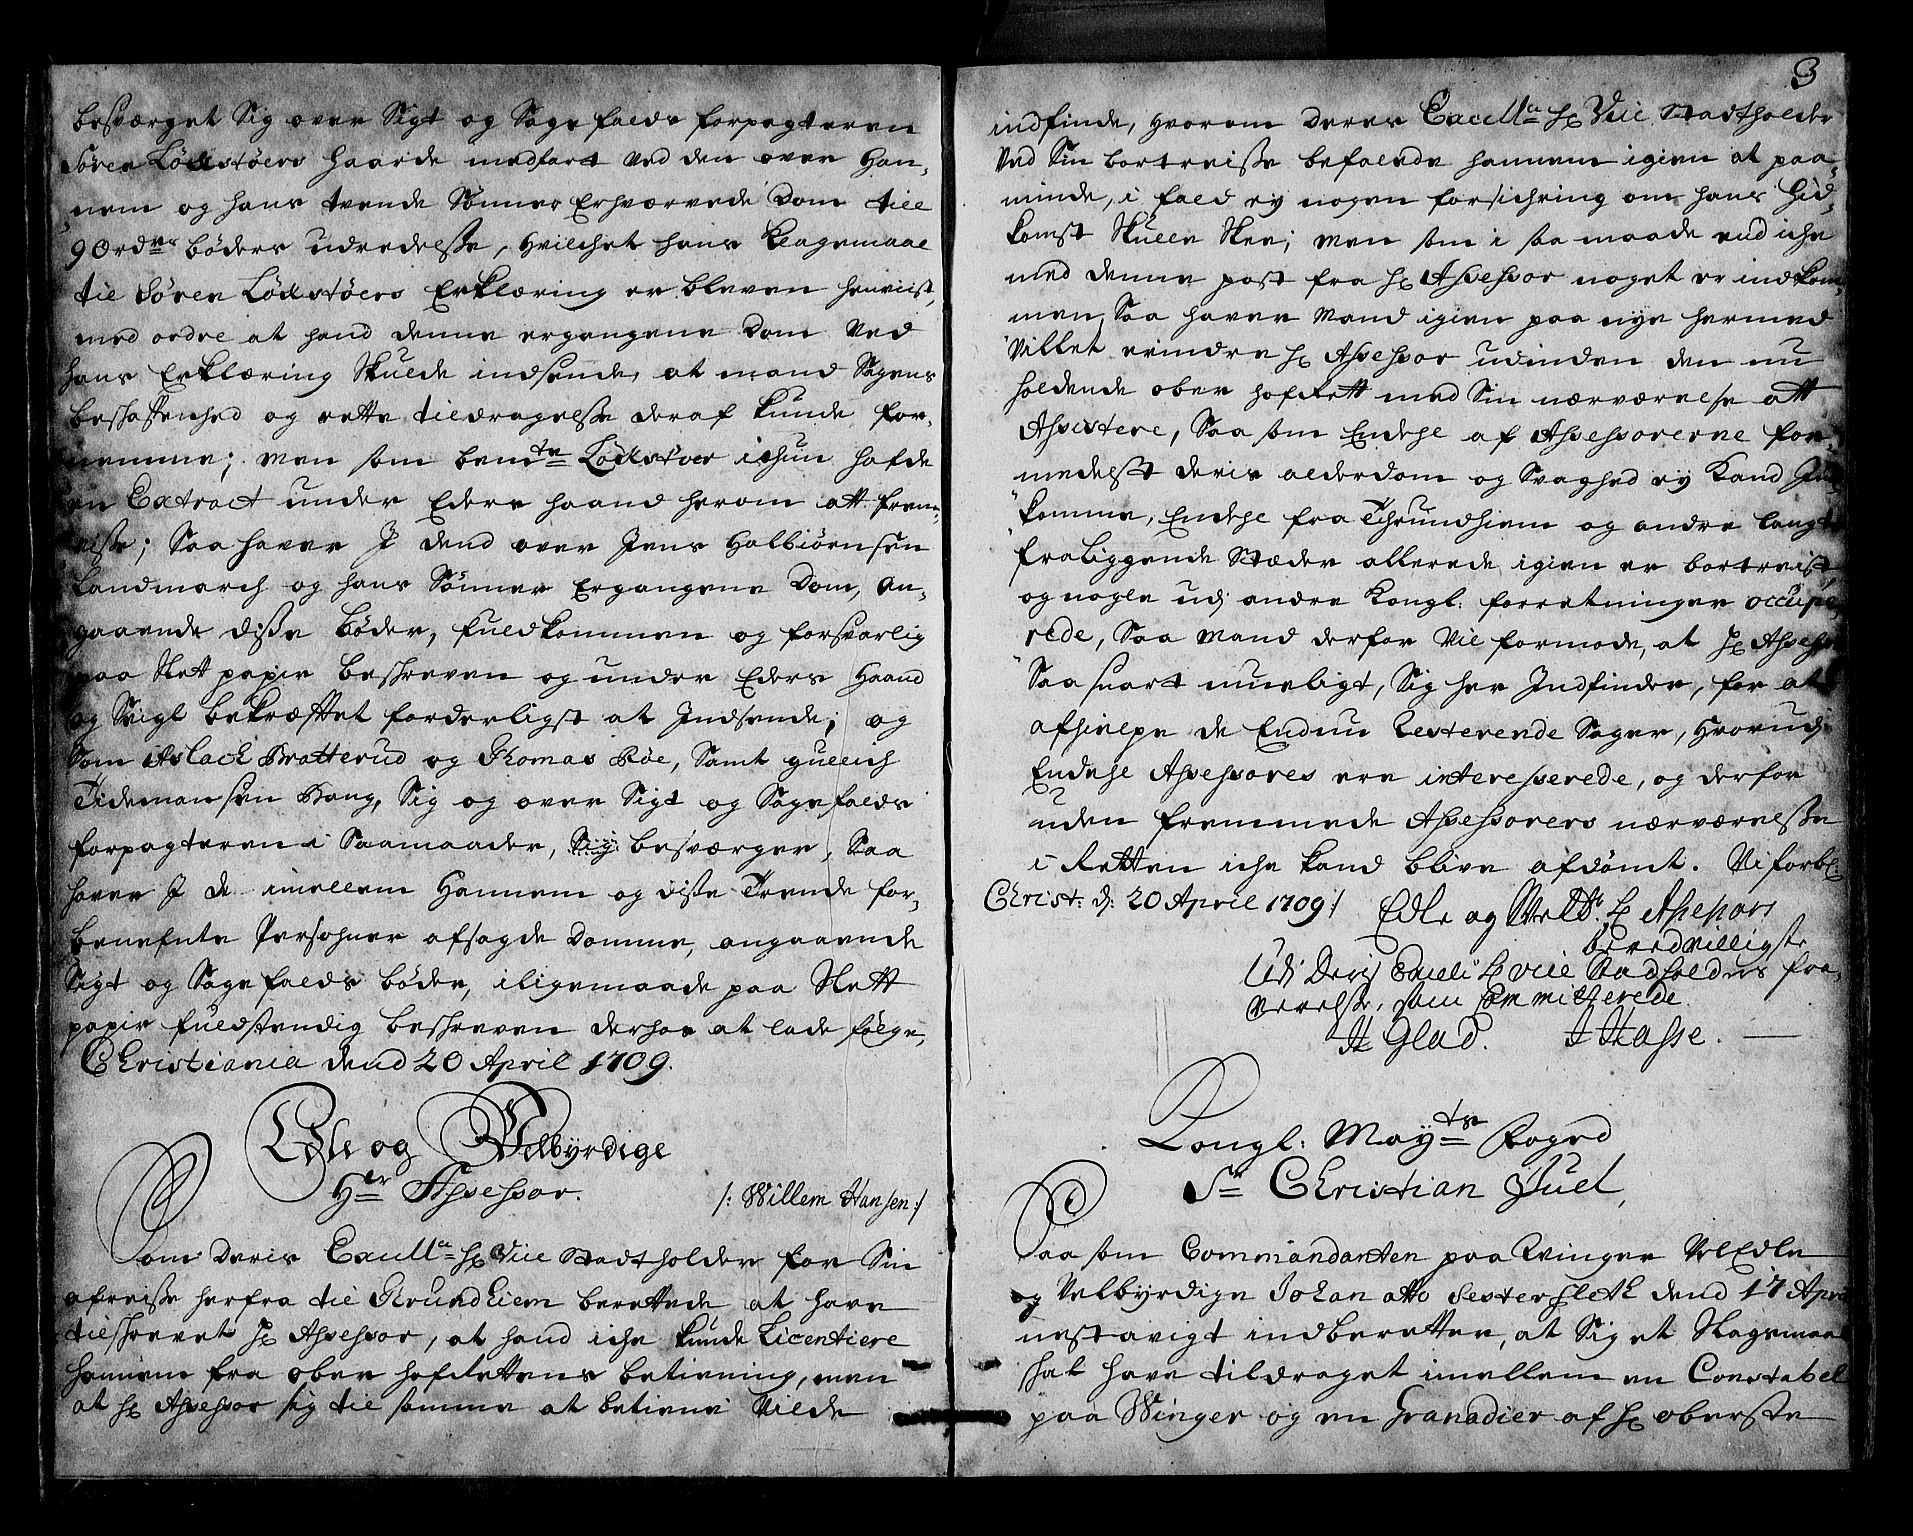 besværget Sig over Sigt og Sagefalds forpagteren
Søren Lødstøers haarde medfart ved den over Han-
nem og hans tvende Sønner Erhvervede Dom till
90 rdrs bøders udredelsse, hvilchet hans Klagemaal
til Søren Lødstøers Erklæring er bleven henviist,
med ordre at hand denne ergangene Dom ved
hans Erklæring Skulde indsende, at mand Sagens
beschaffenhed og rette tildragelsse deraf kunde for-
nemme; men som bemte Lødstøer ichun hafde
en Extract under Eders haand herom att frem-
visse; Saa haver I dend over Jens Halbiørnsen
Landmarch og hans Sønner Ergangene Dom, an-
gaaende disse bøder, fuldkommen og forsvarlig
paa Slett papir beschreven og under Eders Haand
og Seigl bekræfttet forderligst at Indsende; og
Som Aslach Bratterud og Thomas Bøe, Samt gullich
Tidemansen Hang, Sig og over Sigt og Sagefalds
forpagteren i Saamaader, Sig besværger, Saa
haver I de imellem Hannem og disse Trende for-
benefnte Persohner afsagde Domme, angaaende
Sigt og Sagefalds bøder, i ligemaade paa Slett
papir fuldstendig beschreven derhos at lade følge,
Christiania dend 20 April 1709.
Edle og Velbyrdige
Hr Assessor. /: Willem Hansen :/
Som Deris Excellce Hr Vice Stadtholder for Sin
afreisse herfra til Thrundhiem berettede at have
tilschrevet Hr Assessor, at hand iche kunde Licentiere
hannem fra ober hofRettens betiening, men
at Hr Assessor sig til samme at betiene vilde
3
indfinde, hvorom Deres Excellce Hr Vice Stadtholder
ved Sin bortreisse befalede hannem igien at paa-
minde, i fald ey nogen forsichring om hans Hid-
komst Skulle Skee; men som i saa maade end iche
med denne post fra Hr Assessor noget er indkom-
men, Saa haver mand igien paa nye hermed
villet erindre Hr Assessor udinden den nu
holdende ober hofRett med Sin nærværelse att
Assistere, Saa som Endehl af Assessorerne for-
medelst deris alderdom og Svaghed ey Kand Ind-
komme, Endehl fra Thrundhiem og andre langt
fraliggende Stæder allerede igien er bortreist,
og nogle udj andre Kongl: forretninger occupe-
rede, Saa mand derfor vil formode, at Hr Assessor
Saa snart mueligt, Sig her Indfinder, for at
afhielpe de Endnu Resterende Sager, hvorudj
Endehl Assessores ere interesserede, og derfor
uden fremmede Assessorers nærværelsse
i Retten iche kand blive afdømt. Vi forbl:
Christ: d: 20 April 1709 /
Edle og Velb: Hr Assessors
beredvilligste
Udj Deris Excell: Hr Vice Stadholders fra-
verelse, som Committerede.
H Glad. J Hasse.
Kongl: Mayts Foged
Sr Christian Juel,
Saa som Commandanten paa Winger VelEdle
og Velbyrdige Johan Otto Sestersfleth dend 17 April
nestavigt indberetter, at Sig et Slagsmaal
skal have tildraget imellem en Constabel
paa Winger og en Granadier af Hr oberste